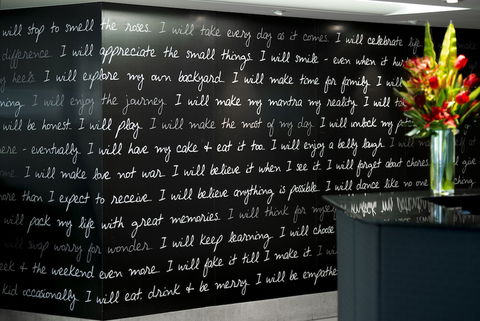 will stop to smell the roses. I will take every day as it comes. I will celebrate life
difference. I will appreciate the small things. I will smile - even when it hur
my heels. I will explore my own backyard. I will make time for family. I will
ning. I will enjoy the journey. I will make my mantra my reality. I will
will be honest. I will play. I will make the most of my day. I will unlock my po
ere - eventually. I will have my cake & eat it too. I will enjoy a belly laugh. I will
will make love not war. I will believe it when I see it. I will forget about chores. I will give
more than I expect to receive. I will believe anything is possible. I will dance like no one
will pack my life with great memories. I will think for myself
will swap worry for wonder. I will keep learning. I will choose
eek & the weekend even more. I will fake it till I make it. I will
kid occasionally. I will eat drink & be merry. I will be empathe